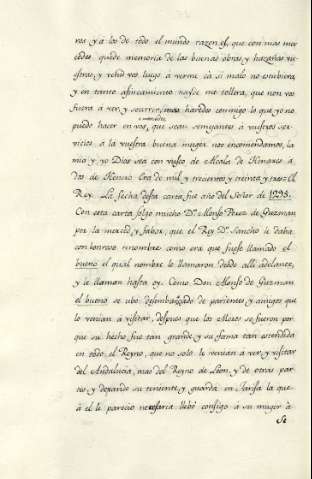 ros y á los de todo el mundo razon es, que con mas mer
cedes quede memoria de las buenas obras, y hazañas vu
estras, y venid vos luego á verme cá si malo no estubiera,
y en tanto afincamiento nayse me tollera, que non vos
fuera á ver, y socorrer, mas haredes conmigo lo que yo no
puedo hacer en vos, que sean semejantes á vuestros ser
vicios á la vuestra buena muger nos encomendamos, la
mia y yo Dios sea con vusco de Alcala de Henares á
dos de Henero Era de mil y trecientos y treinta y tres El
Rey. La fecha desta carta fue año del Señor de 1295.
Con esta carta folgo mucho Dⁿ Alonso Perez de Guzman
por la merced, y fabor, que el Rey Dⁿ Sancho le daba
con honroso renombre como era que fuese llamado el
bueno el qual nombre le llamaron desde alli adelante,
y le llaman hasta oy. Como Don Alonso de Guzman
el bueno se ubo desembarazado de parientes, y amigos que
lo venian á visitar, despues que los Moros se fueron por
que su hecho fue tan grande, y su fama tan estendida
en todo el Reyno, que no solo le venian a ver, y visitar
del Andalucia, mas del Reyno de Leon, y de otras par
tes, y dexando su teniente, y guarda en Tarifa la que
á él le parecio necesaria llebó consigo á su muger á
Se